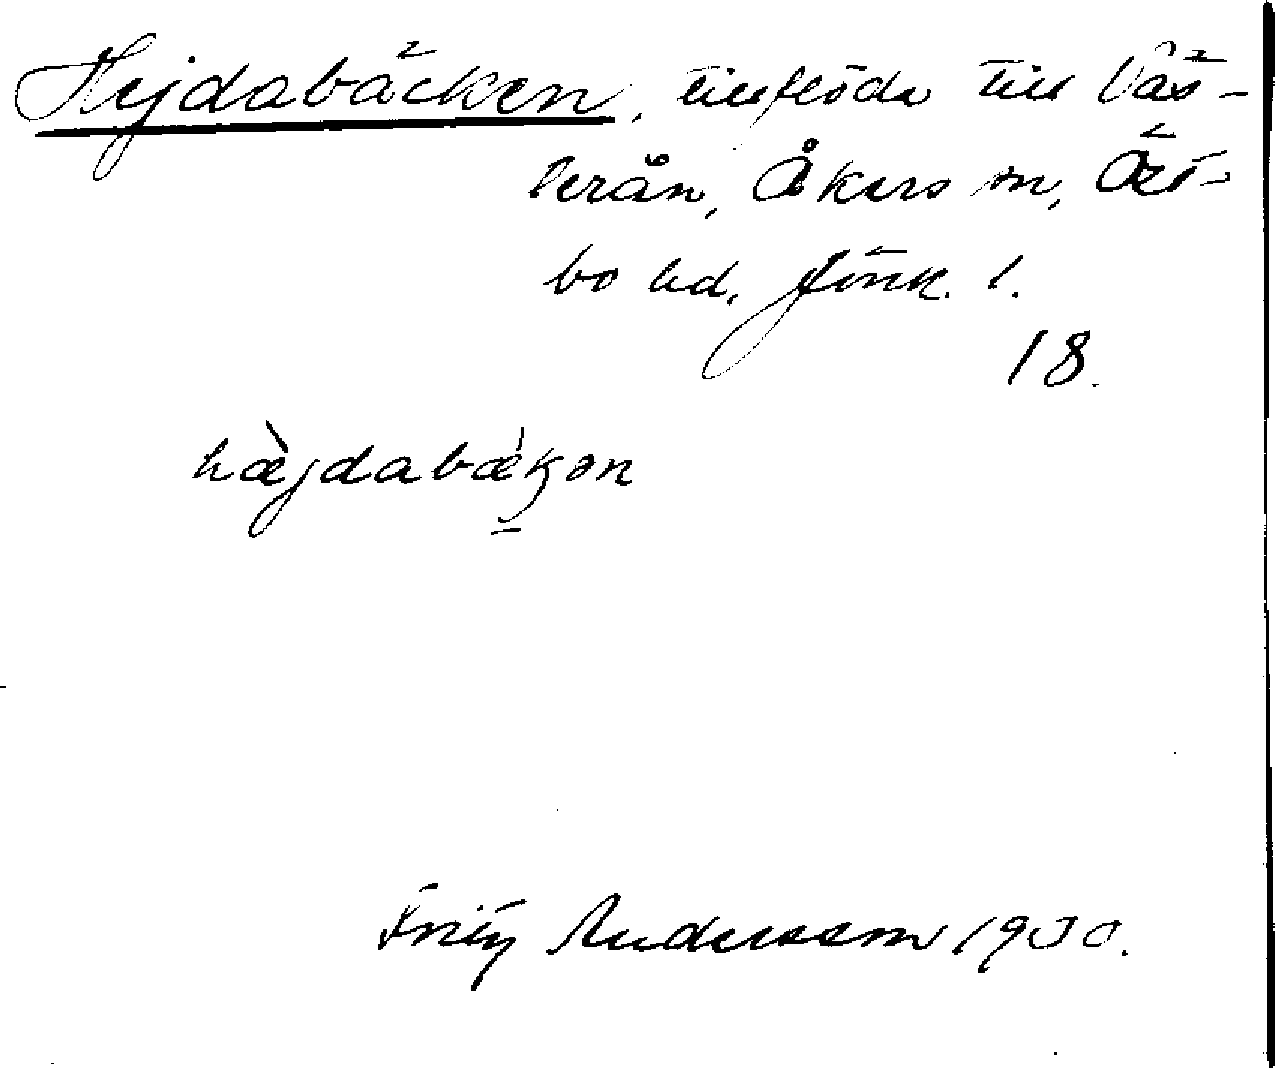 Hejdabäcken, tillflöde till Väs-
terån, Åkers sn, Öst-
bo hd, Jönk. l.
18.
hæ̀jdabæ̀kən
Fritz Andersson 1930.